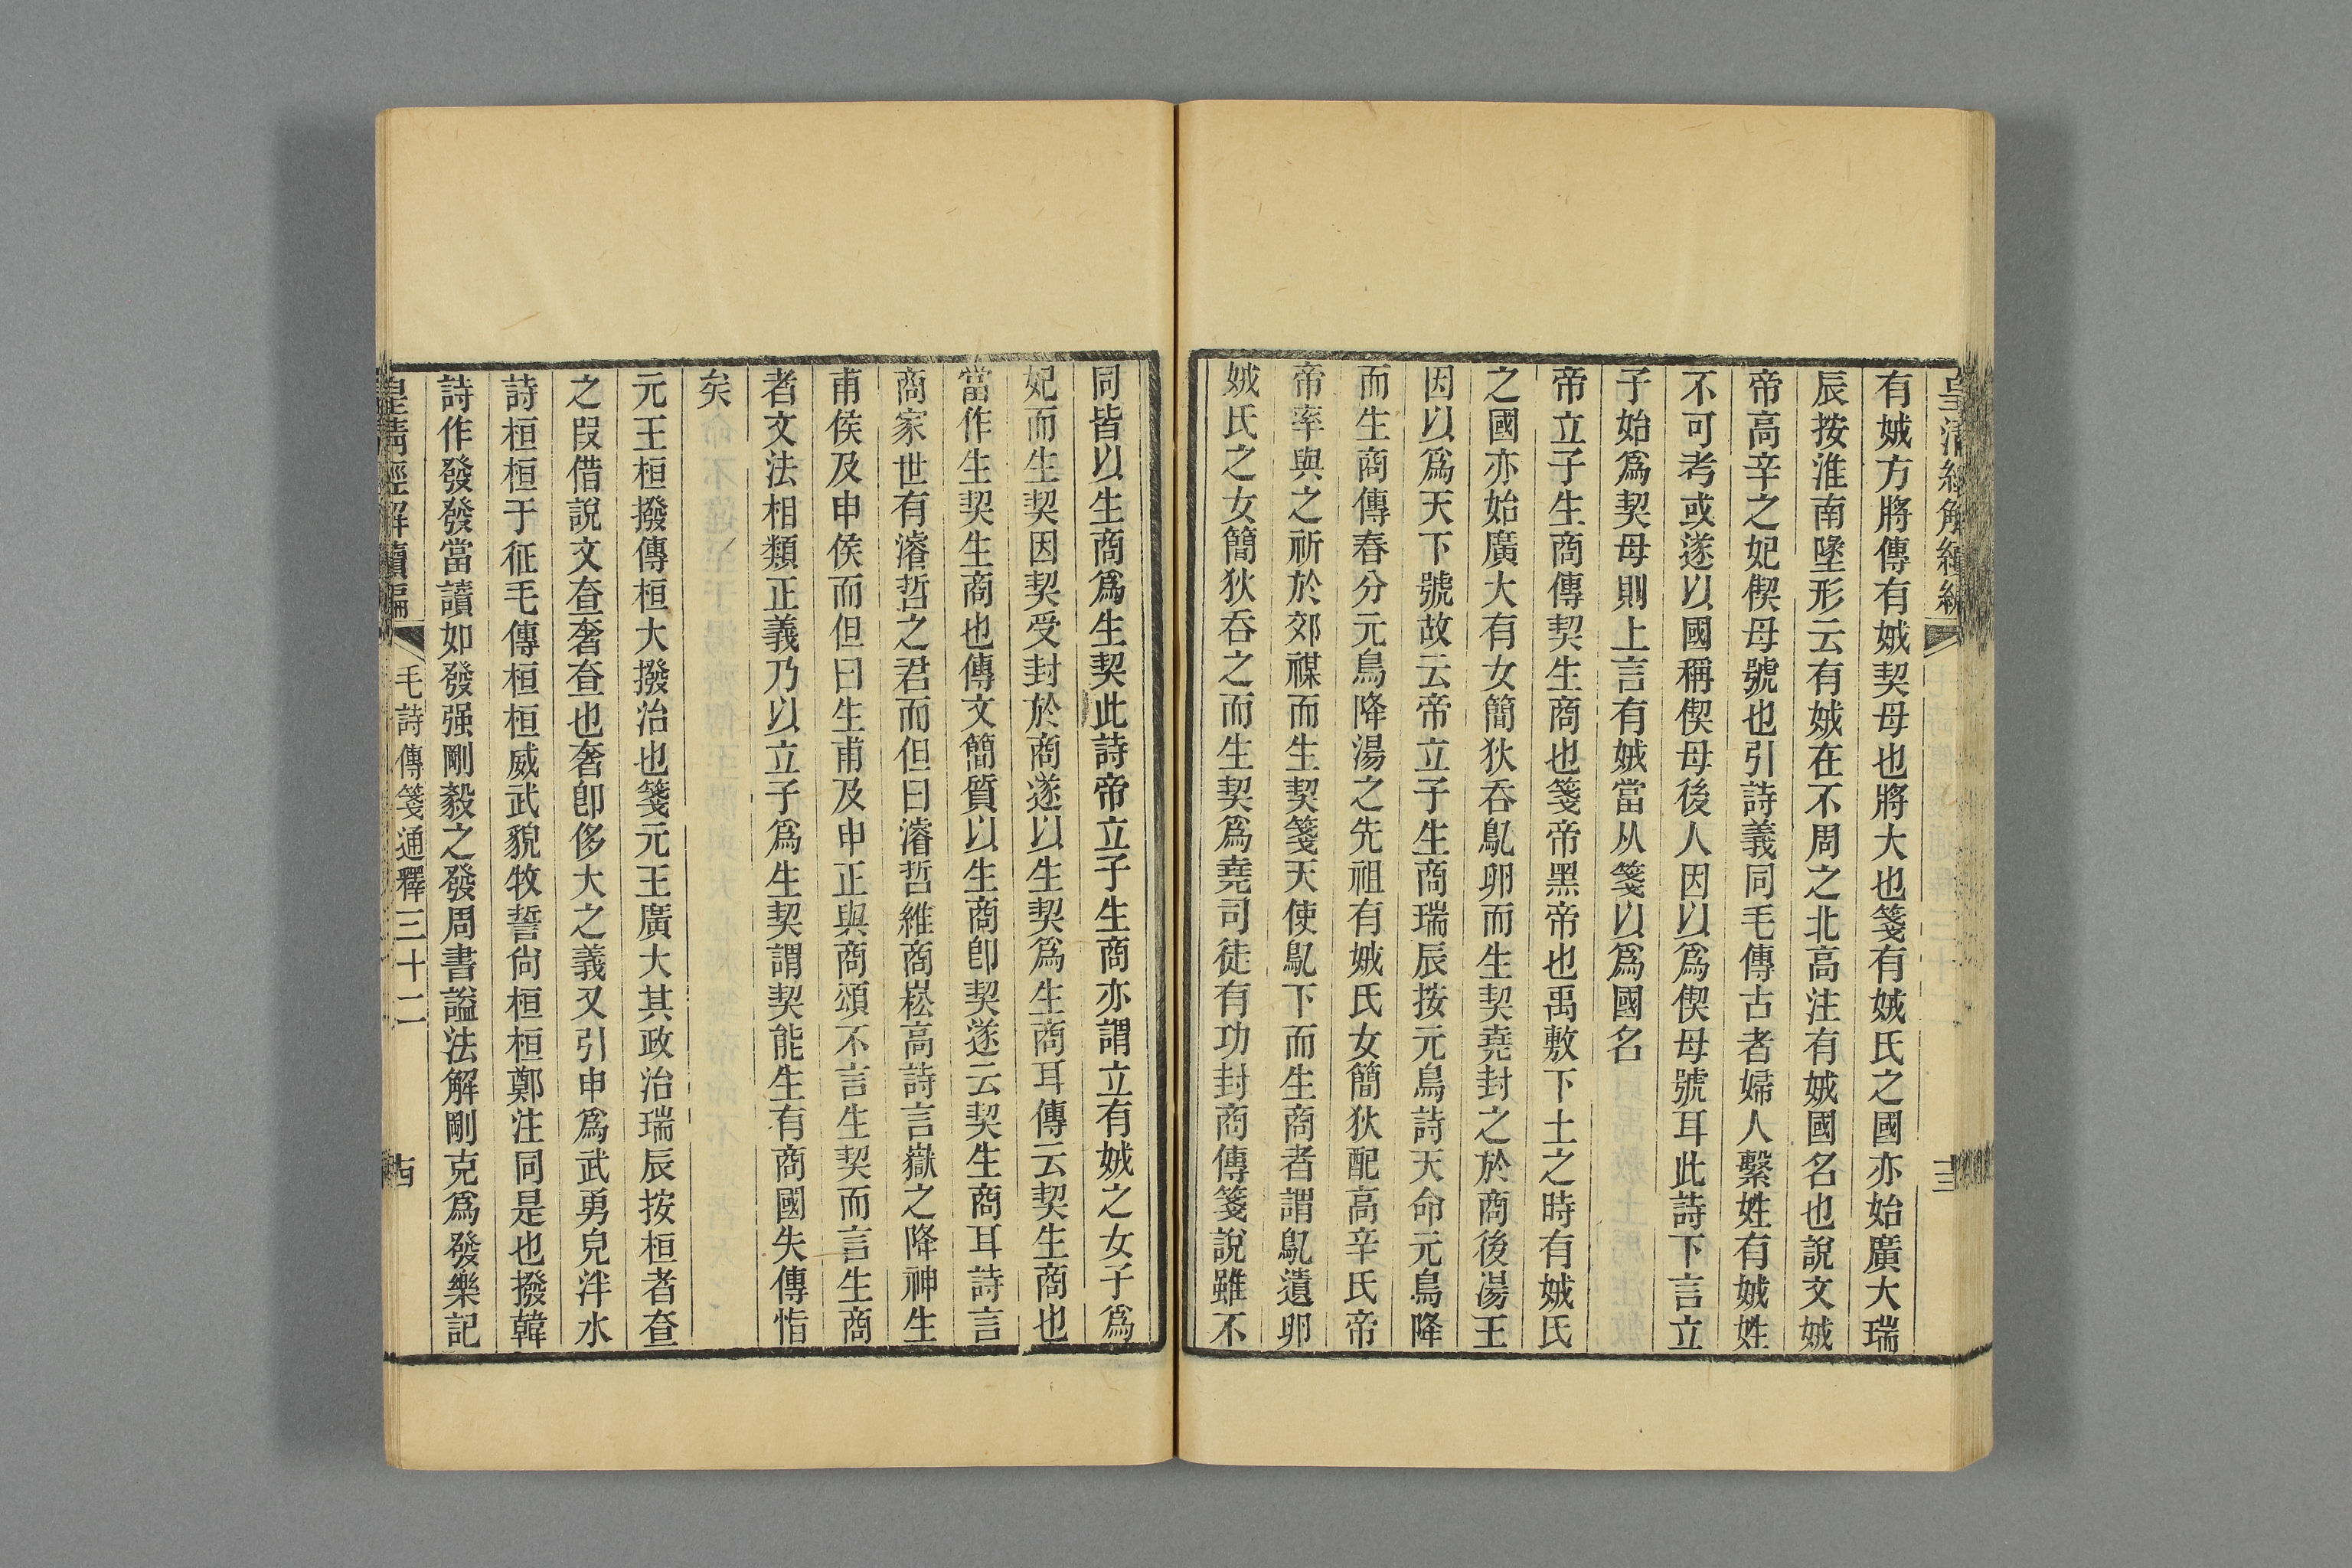 皇清經解續編
十三
有娀方將傳有娀契母也將大也箋有娀氏之國亦始廣大瑞
辰按淮南墬形云有娀在不周之北高注有娀國名也說文娀
帝高辛之妃偰母號也引詩義同毛傳古者婦人繫姓有娀姓
不可考或遂以國稱偰母後人因以爲偰母號耳此詩下言立
子始爲契母則上言有娀當从箋以爲國名
帝立子生商傳契生商也箋帝黑帝也禹敷下土之時有娀氏
之國亦始廣大有女簡狄吞鳦卵而生契堯封之於商後湯王
因以爲天下號故云帝立子生商瑞辰按元鳥詩天命元鳥降
而生商傳春分元鳥降湯之先祖有娀氏女簡狄配高辛氏帝
帝率與之祈於郊禖而生契箋天使鳦下而生商者謂鳦遺卵
娀氏之女簡狄吞之而生契爲堯司徒有功封商傳箋說雖不
同皆以生商爲生契此詩帝立子生商亦謂立有娀之女子爲
妃而生契因契受封於商遂以生契爲生商耳傳云契生商也
當作生契生商也傳文簡質以生商卽契遂云契生商耳詩言
商家世有濬哲之君而但曰濬哲維商崧高詩言嶽之降神生
甫侯及申侯而但曰生甫及申正與商頌不言生契而言生商
者文法相類正義乃以立子爲生契謂契能生有商國失傳恉
矣
元王桓撥傳桓大撥治也箋元王廣大其政治瑞辰按桓者查
之叚借說文查奢查也奢卽侈大之義又引申爲武勇皃泮水
詩桓桓于征毛傳桓桓威武貌牧誓尙桓桓鄭注同是也撥韓
詩作發發當讀如發强剛毅之發周書謚法解剛克爲發樂記
皇清經解續編
毛詩傳箋通釋三十二
古